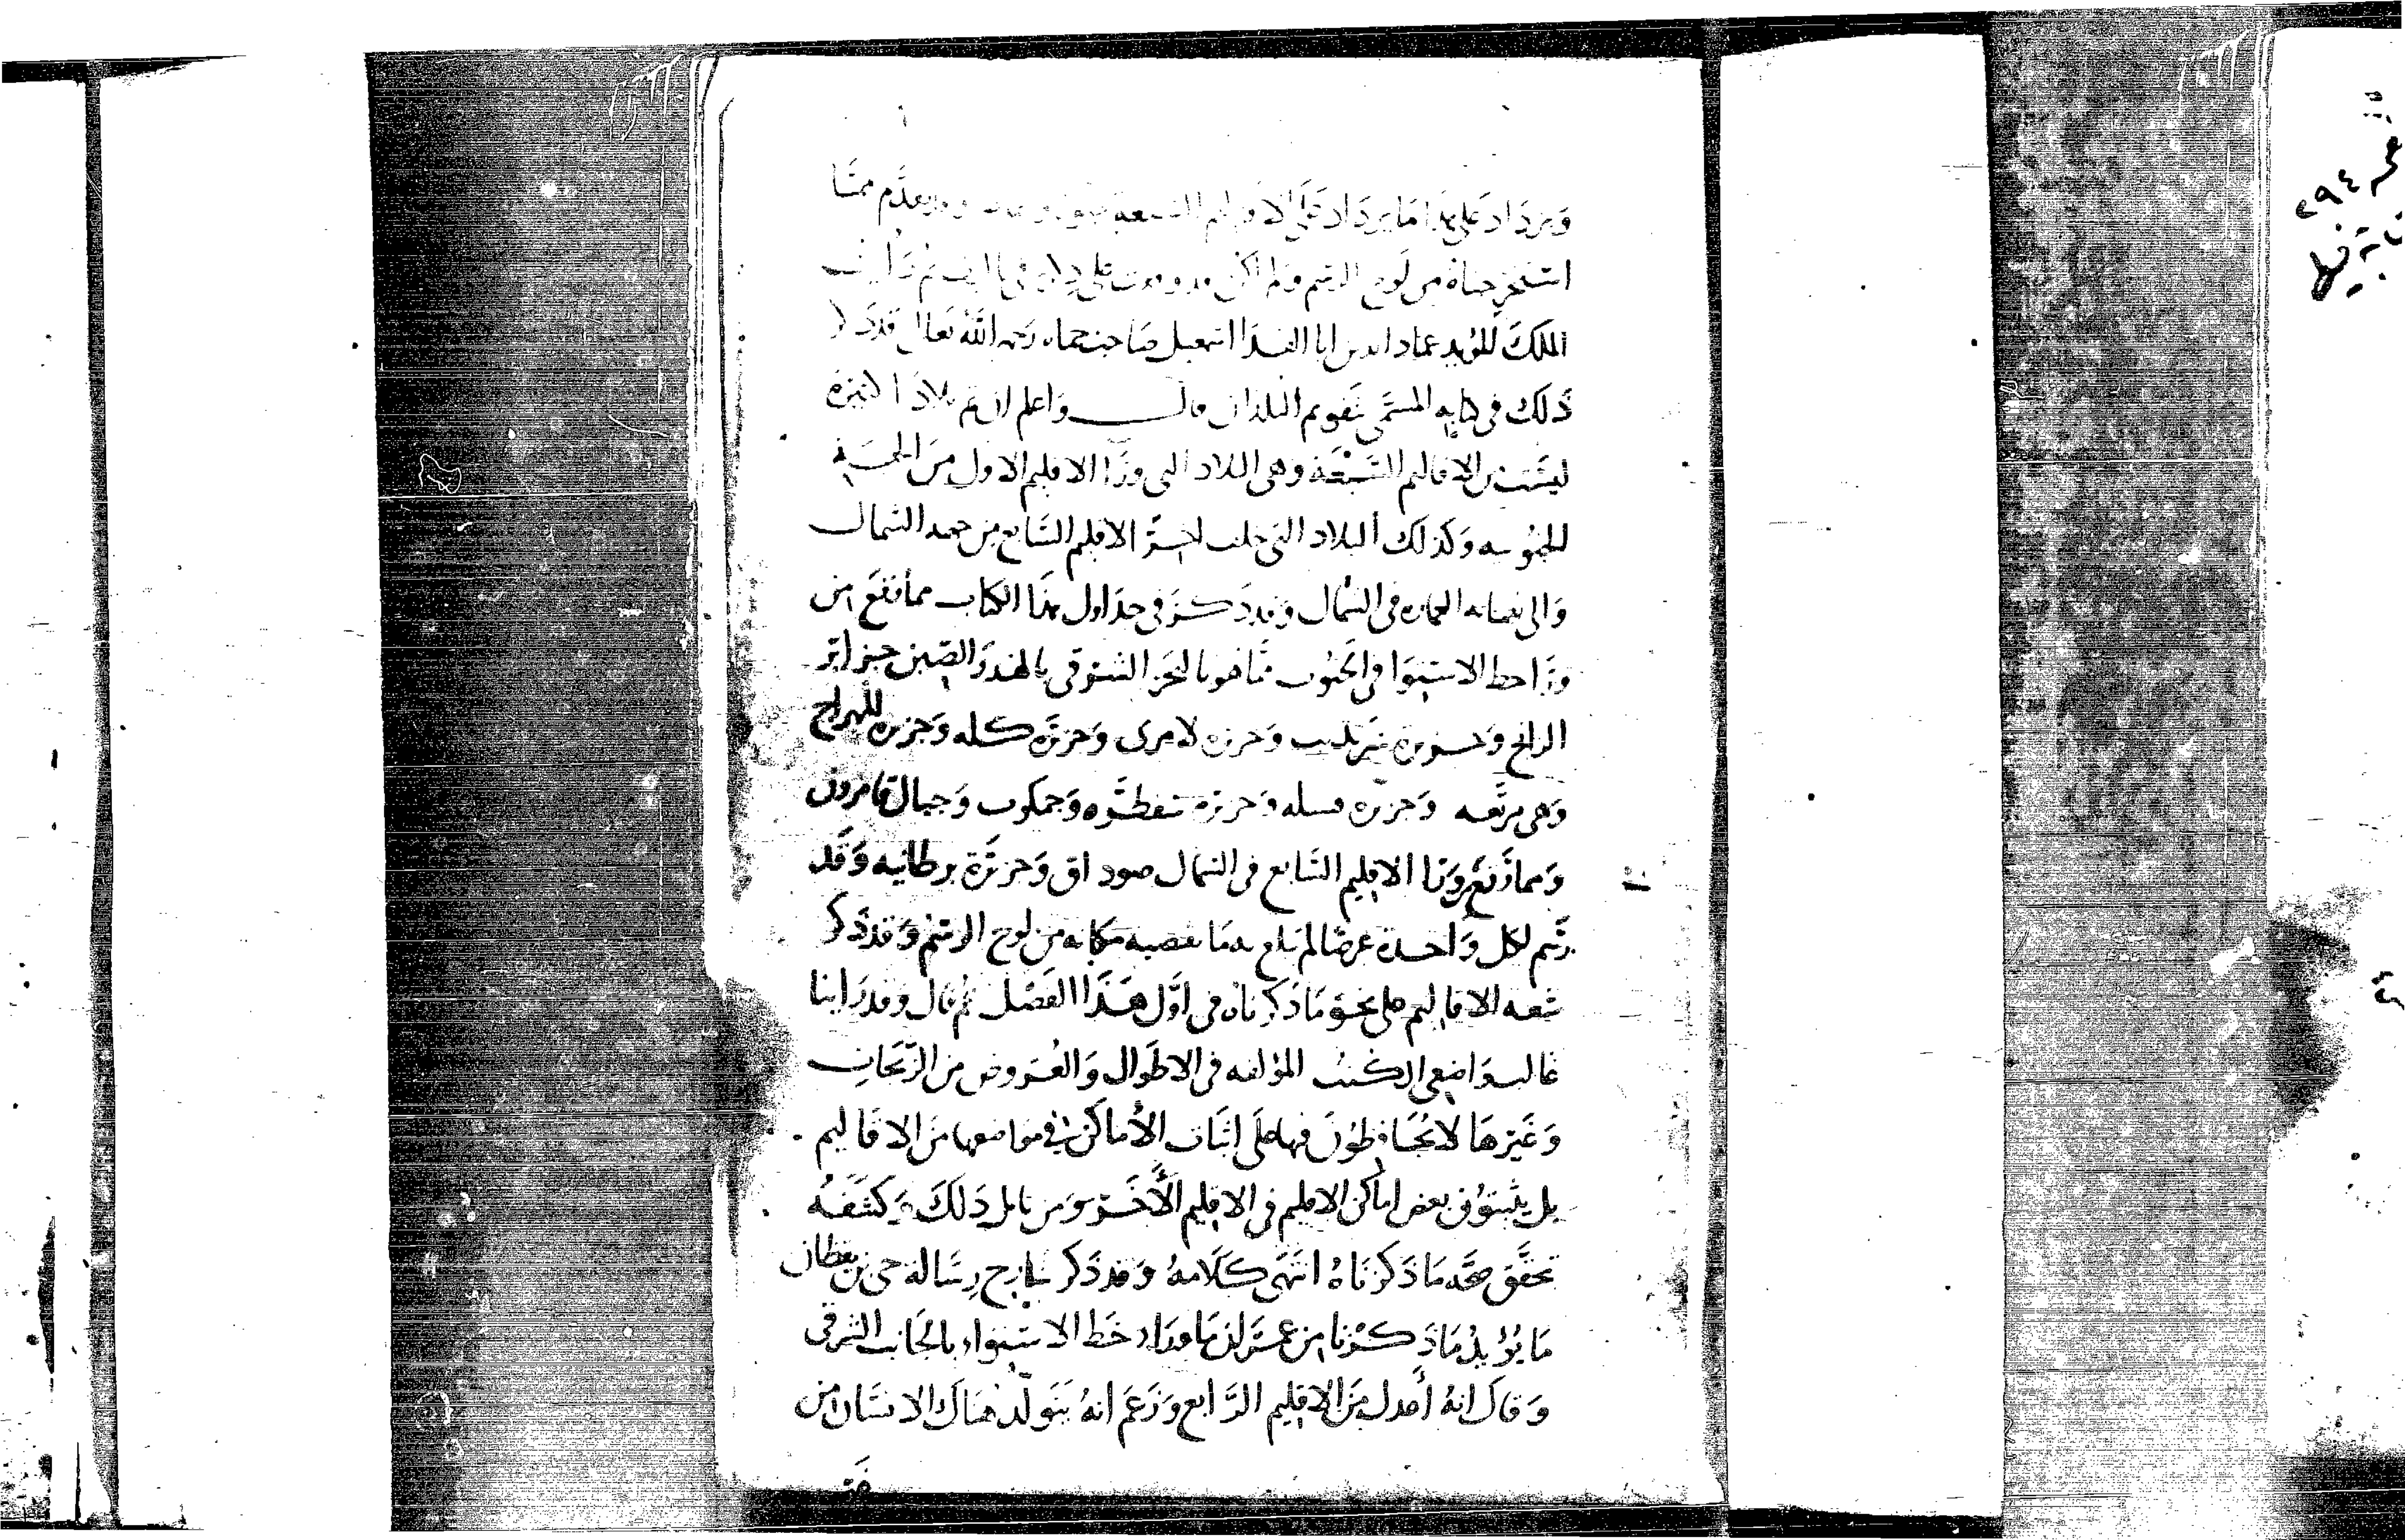 ويزداد على هذا ما يزداد على الاقاليم السبعة مما
استخرجناه من لوح الرسم ولم اكن وقفت على
الملك المؤيد عماد الدين ابا الفدا اسمعيل صاحب حماه رحمه الله تعالى قد
ذلك في كتابه المسمى تقويم البلدان قال واعلم ان ثم بلاد كثيرة
ليست من الاقاليم السبعة وهى البلاد التى ورا الاقليم الاول من الجهة
الجنوبيه وكذلك البلاد التى خلف اخر الاقليم السابع من جهه الشمال
والى نهايه العماره فى الشمال وقد ذكر فى جداول هذا الكتاب مما يقع من
ورا خط الاستوا في الجنوب مما هو بالبحر الشرقى بالهند والصين جزاير
الرانج وجزيرة سرنديب وجزيره لامرى وجزيره كله وجزيره المهراج
وهى سربنعه وجزيره وجزيره سقطره وجمكوب وجبال قامرون
ومما يقع ورا الاقليم السابع فى الشمال صوداق وجزيرة برطانيه وقد
رسم لكل واحدة عرضا لم يبلغ به ما يقتضيه مكانه من لوح الرسم وقد ذكر
سعه الاقاليم على نحو ما ذكرناه فى اول هذا الفصل ثم قال وقد راينا
غالب واضعى الكتب المؤلفه فى الاطوال والعروض من الزيجات
وغيرها لا يحافظون فيها على اثبات الأماكن في مواضعها من الاقاليم
بل يثبتون بعض اماكن الاقليم فى الاقليم الأخر ومن تامل ذلك وكشفه
تحقق صحه ما ذكرناه انتهى كلامه وقد ذكر شارح رسالة حى بن يقظان
ما يؤيد ما ذكرنا من عمران ما وراء خط الاستواء بالجانب الشرقى
وقال انه أعدل من الاقليم الرابع وزعم انه يتولد هناك الانسان من
٢٩٤